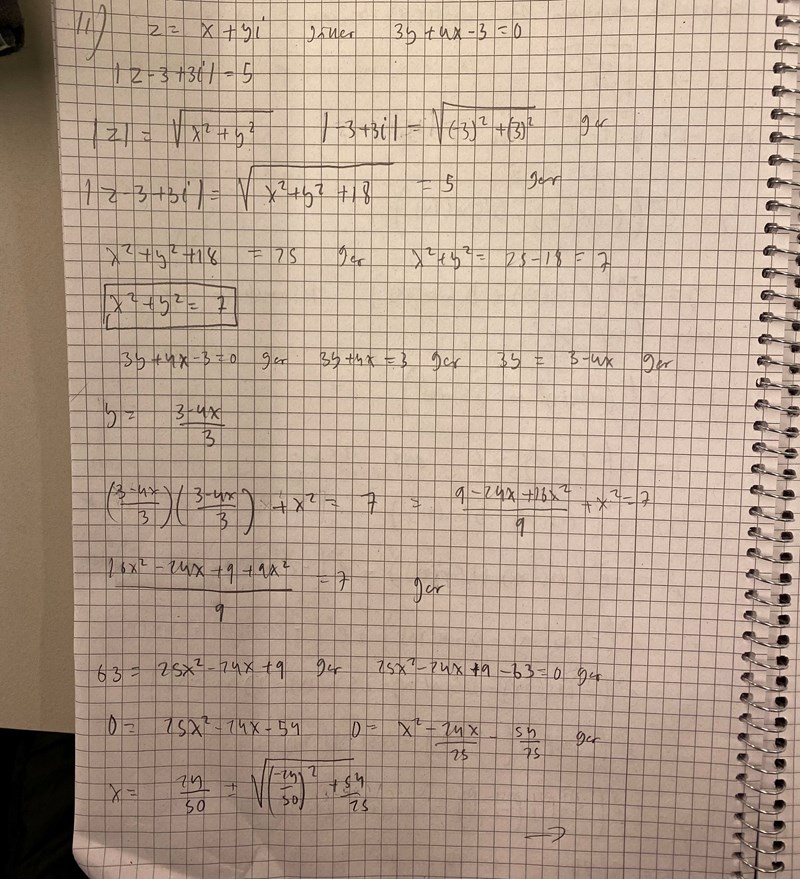 11) z = x + yi giver 3y + 4x - 3 = 0
|z - 3 + 3i| = 5
|z| = √(x² + y²) |-3 + 3i| = √((-3)² + (3)²) ger
|z - 3 + 3i| = √(x² + y² + 18) = 5 ger
x² + y² + 18 = 25 ger x² + y² = 25 - 18 = 7
x² + y² = 7
3y + 4x - 3 = 0 ger 3y + 4x = 3 ger 3y = 3 - 4x ger
y = (3 - 4x)/3
((3 - 4x)/3)((3 - 4x)/3) + x² = 7 = (9 - 24x + 16x²)/9 + x² = 7
(16x² - 24x + 9 + 9x²)/9 = 7 ger
63 = 25x² - 24x + 9 ger 25x² - 24x + 9 - 63 = 0 ger
0 = 25x² - 24x - 54 0 = x² - 24x/25 - 54/25 ger
x = 24/50 ± √((-24/50)² + 54/25)
→